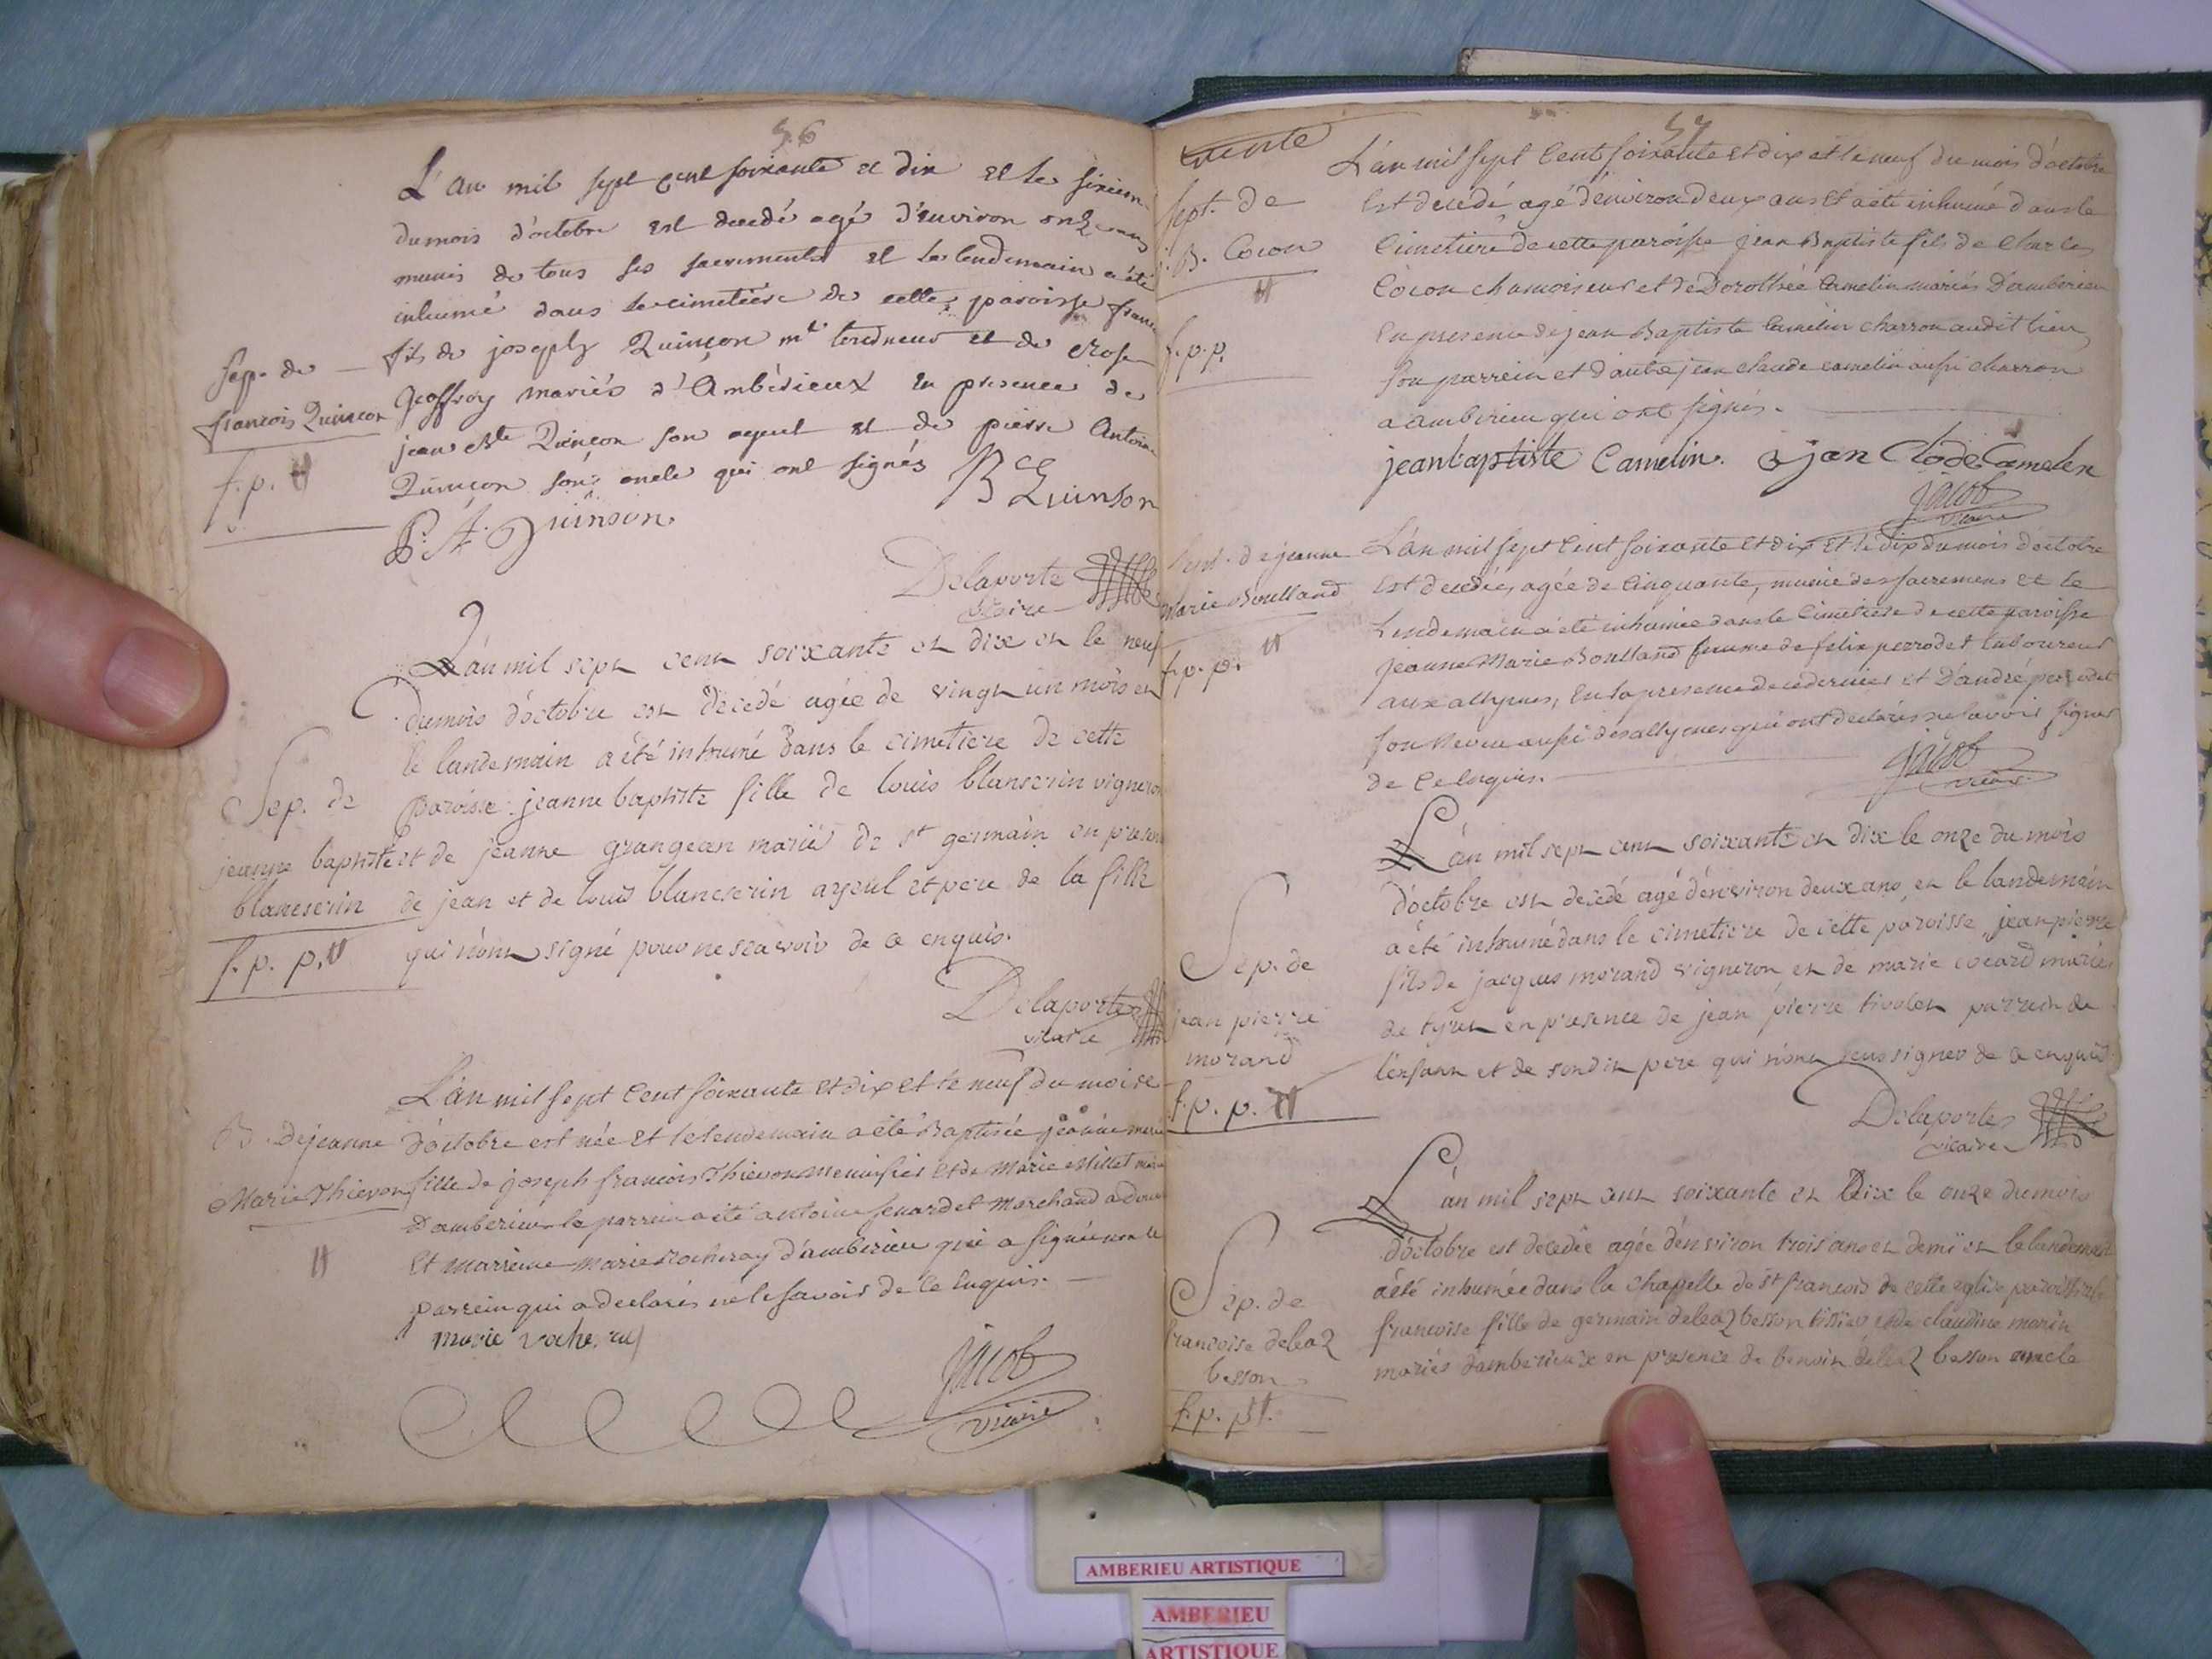 56
L'an mil sept cent soixante et dix et le sixiem
du mois d'octobre est decedé agé d'environ onze ans
munis de tous ses sacrements et le lendemain a été
inhumé dans le cimetière de cette paroisse
Sep. de
françois Quinçon
f. p.
fils de joseph Quinçon m.d tondeur et de
Geoffroy mariés d'Ambérieux en presence de
jean Bte Quinçon son ayeul et de pierre Antoine
Quinçon son oncle qui ont signés
B Quinson
P. A. Quinson
Delaporte
vicaire
L'an mil sept cent soixante et dix et le neuf
du mois d'octobre est decedé agée de vingt un mois et
le landemain a été inhumé dans le cimetiere de cette
Sep. de
jeanne baptiste
blancserin
f. p. p.
paroisse jeanne baptiste fille de louis blancserin vigneron
et de jeanne grangean marié de st germain en presen
de jean et de louis blancserin ayeul et pere de la fille
qui n'ont signé pour ne sçavoir de ce enquis.
Delaporte
vicaire
B. de jeanne
Marie Thievon
L'an mil sept cent soixante et dix et le neuf du mois
d'octobre est née et le lendemain a été Baptisée jeanne marie
fille de joseph françois Thievon Menuisier et de Marie Millet
D'amberieu le parrein a été antoine fenardet Marchand
Et marreine Marie Rocheray d'amberieu qui a signée non le
parrein qui a declarés ne le savoir de ce Enquis.
marie roche. ray
jacob
vicaire
57
trente
Sept. de
j. B. Cocon
f. p. p.
L'an mil sept Cent soixante et dix et le neuf du mois d'octobre
Est decédé agé d'environ deux ans et a été inhumé dans le
Cimetiere de cette paroisse jean Baptiste fils de Charles
Cocon chamoiseur et de Dorothée Camelin mariés D'amberieu
En presence de jean Baptiste Camelin charron audit lieu
son parrein et d'autre jean claude camelin aussi charron
a amberieu qui ont signés.
jean baptiste Camelin. jan Clode Camelen
jacob
vicaire
Sept. de jeanne
Marie Boulland
f. p. p.
L'an mil sept Cent soixante et dix et le dix du mois d'octobre
Est decedée, agée de Cinquante, munie des sacremens et le
Lendemain a été inhumée dans le Cimetiere de cette paroisse
jeanne Marie Boulland femme de felix perrodet Laboureur
aux allymes, En la presence de ce dernier et D'andré perrodet
son Neveu aussi des allymes qui ont declarés ne savoir signer
de Ce Enquis.
jacob
vicaire
L'an mil sept cent soixante et dix le onze du mois
d'octobre est decedé agé d'environ deux ans et le landemain
a été inhumé dans le cimetiere de cette paroisse jean pierre
Sep. de
jean pierre
morand
f. p. p.
fils de jacques morand vigneron et de marie cocard mariés
de tyret en presence de jean pierre tivolet parrein de
l'enfant et de sondit pere qui n'ont sçus signer de ce enquis.
Delaporte
vicaire
L'an mil sept cent soixante et Dix le onze du mois
d'octobre est decedée agée d'environ trois ans et demi et le landemain
a été inhumée dans la chapelle de st françois de cette eglise paroissiale
Sep. de
françoise deleaz
besson
f. p. p.
françoise fille de germain deleaz besson tissier et de claudine marin
mariés d'amberieux en presence de benoit deleaz besson oncle
AMBERIEU ARTISTIQUE
AMBERIEU
ARTISTIQUE